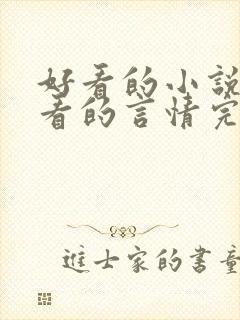 好看的小說
看的言情完
進士家的書童